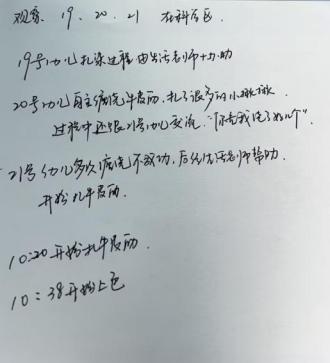 观察 19、20、21 在科发区
19号幼儿扎染过程由当活老师协助
20号幼儿自主缠绕牛皮筋，扎了很多的小揪揪.
过程中还跟21号幼儿交流，“你看我绕了好几个”.
21号幼儿多次缠绕不成功，后经老师帮助.
开始扎牛皮筋.
10:20开始扎牛皮筋.
10：38开始上色